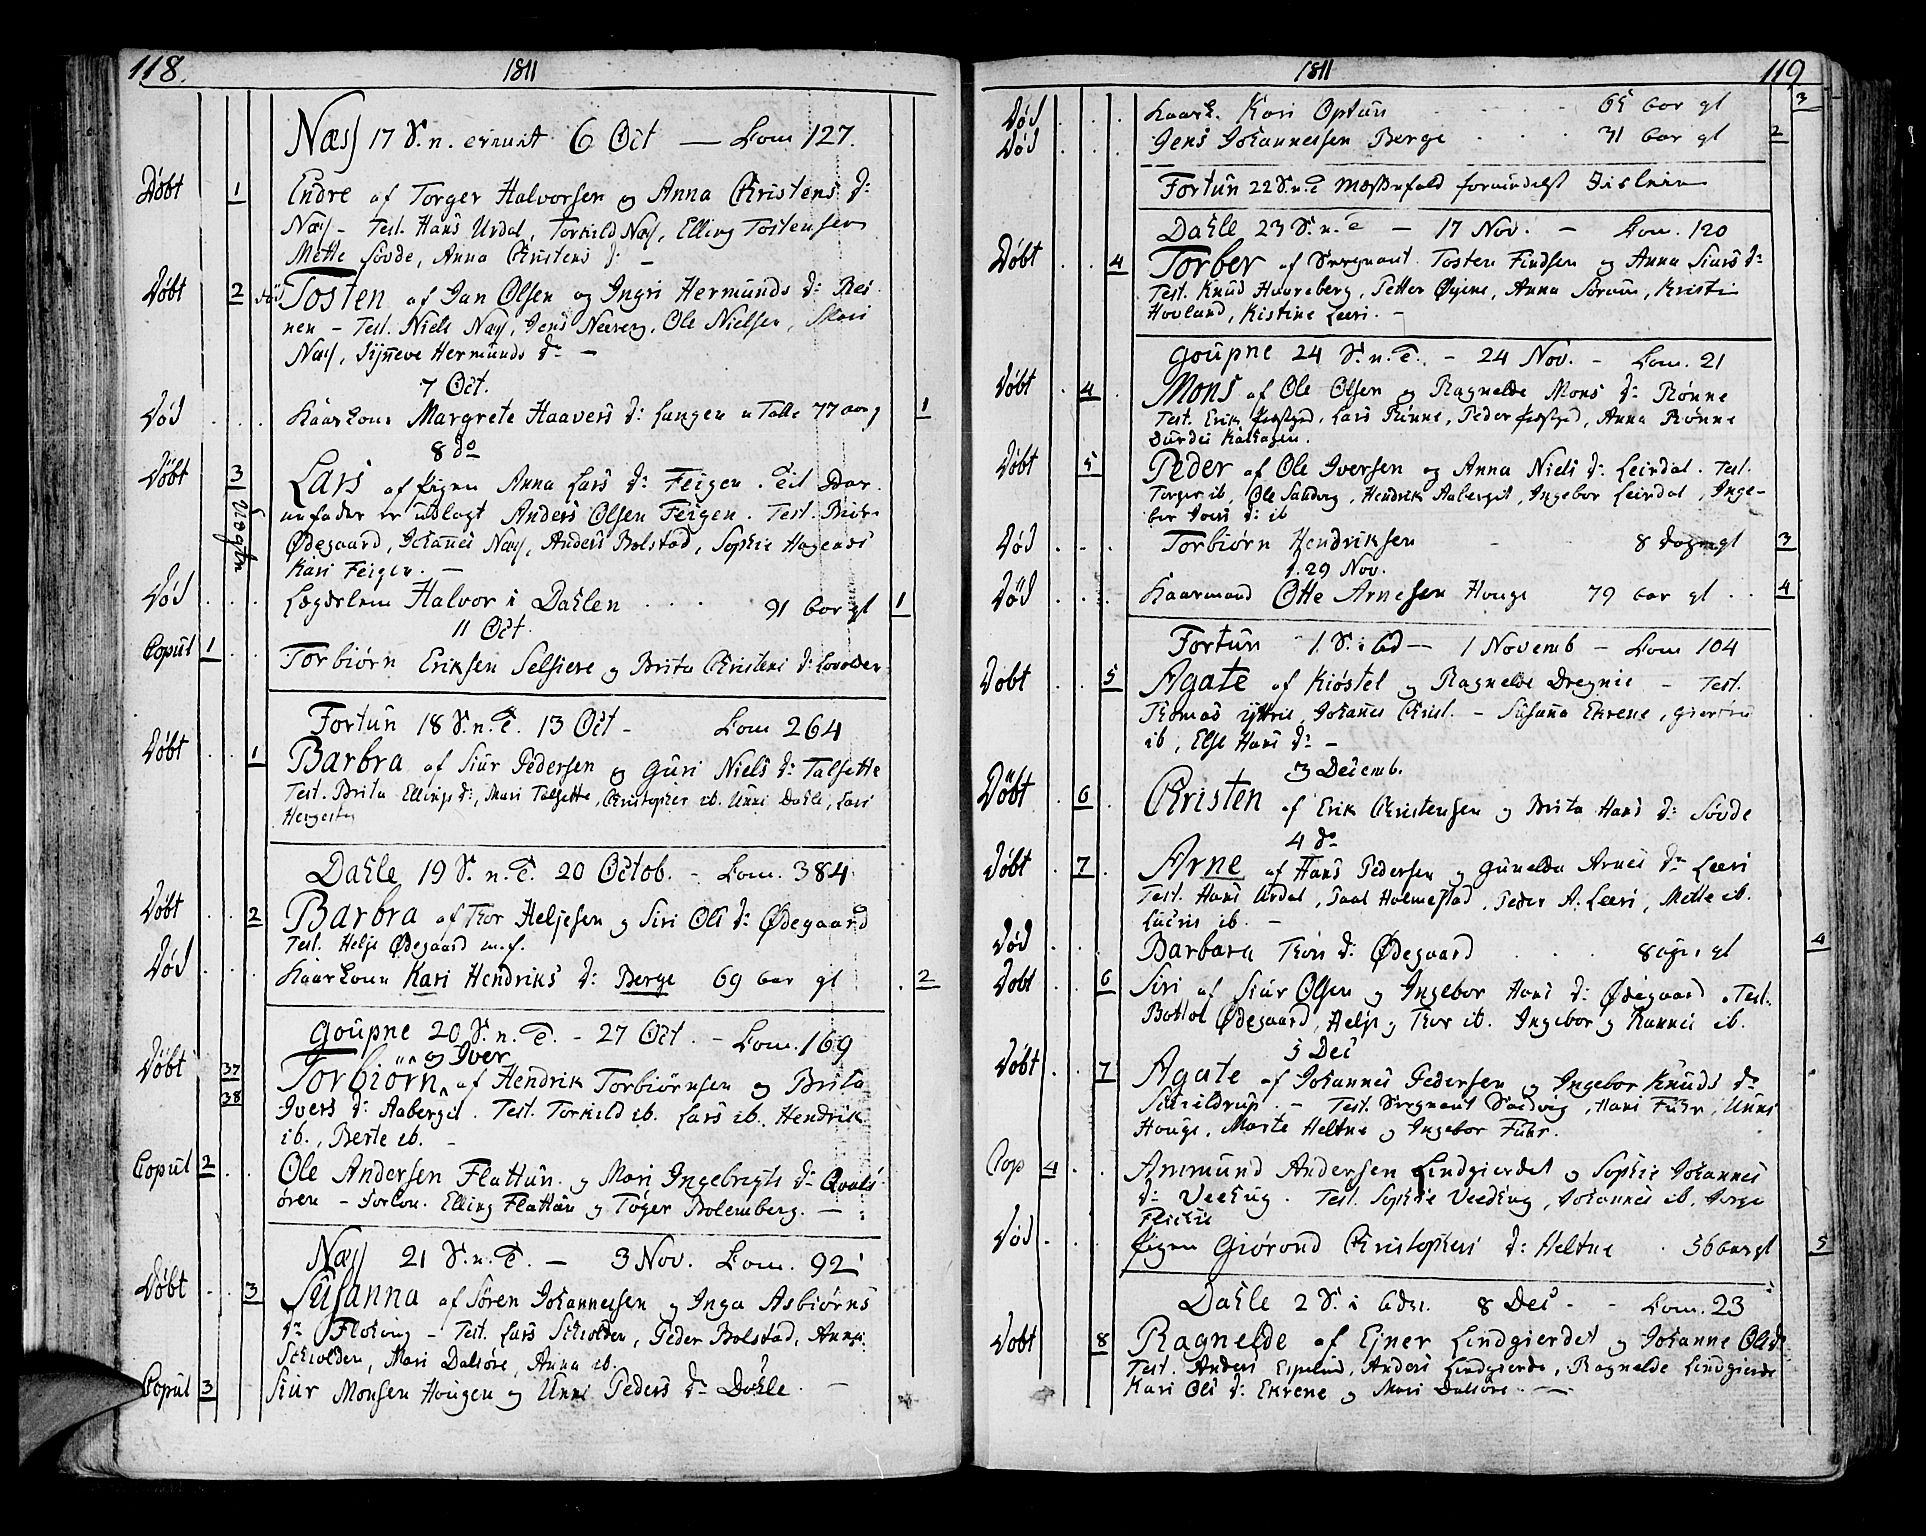 118. 1811
Næs 17 S. n. 6 Oct — Com 127.
Døbt 1 Endre af Torger Halvorsen og Anna Christens d:
Næs – Test. Hans Urdal, Torkild Næs, Elling Tostensen
Mette Søvde, Anna Christens d: –
Døbt 2 Tosten af Jan Olsen og Ingri Hermunds d: Bei
nen – Test. Niels Næs, Jens Næs, Ole Nielsen, Mari
Næs, Synneve Hermunds d: –
7 Oct.
Død Kaarkone Margrete Haavers d: Langen 77 aar g 1
8 do
Døbt 3 Lars af Pigen Anna Lars d: Feigen. Til Bar
nefader er udlagt Anders Olsen Feigen. Test.
Uægte Ødegaard, Johannes Næs, Anders Bolstad, Sophie
Kari Feigen. –
Død Lægdslem Halvor i Dahlen 91 aar gl 1
11 Oct.
Copul 1 Torbiørn Eriksen Selsiere og Brita Christens d:
Fortun 18 S. n. T. 13 Oct – Com 264
Døbt 1 Barbra af Siur Pedersen og Guri Niels d: Talsette
Test. Brita Ellings d:, Mari Talsette, Christopher ib. Unni Dahle, Lars
Dahle 19 S. n. T. 20 Octob. – Com. 384
Døbt 2 Barbra af Thor Heljesen og Siri Ols d: Ødegaard
Test. Helje Ødegaard m. f.
Død Kaarkone Kari Hendriks d: Berge 69 aar gl 2
Goupne 20 S. n. T. – 27 Oct. – Com. 169
og Iver
Døbt 37 Torbiørn af Hendrik Torbiørnsen og Brita
38 Ivers d: Aaberge. Test. Torkild ib. Lars ib. Hendrik
ib., Berte ib. –
Copul 2 Ole Andersen Flattun og Mari Ingebrigts d: Qvals
øren – Forlov. Elling Flattun og Tøger Bolemberg. –
Næs 21 S. n. T. – 3 Nov. Com. 92
Døbt 3 Susanna af Søren Johannessen og Inga Asbiørns
d: – Test. Lars Schiolden, Peder Bolstad, Anne
Schiolden, Mari Dalsøre, Anna ib.
Copul 3 Siur Monsen Hougen og Unni Peders d: Dahle. –
1811 119
Død Kaark. Kari Optun 65 aar gl 3
Død Jens Johannessen Berge 31 aar gl 2
Fortun 22 S. n. T. Messefald
Dahle 23 S. n. T – 17 Nov. – Com. 120
Døbt 4 Torber af Sergeant Tosten Findsen og Anna Siurs d:
Test. Knud Haureberg, Petter Øyene, Anna Sorum, Kristi
Hovland, Kistine Leeri. –
Goupne 24 S. n. T. – 24 Nov. – Com. 21
Døbt 4 Mons af Ole Olsen og Ragnelde Mons d: Rønne
Test. Erik, Lars Rønne, Peder, Anna Rønne
Døbt 5 Peder af Ole Iversen og Anna Niels d: Leirdal. Test.
Torger ib, Ole Sandvig, Hendrik Aaberget, Ingebor Leirdal, Inge-
bor d: ib
Død Torbiørn Hendriksen 8 gl 3
29 Nov.
Død Kaarmand Otte Arnesen Houge 79 aar gl 4
Fortun 1 S. i Ad – 1 Novemb – Com 104
Døbt 5 Agate af Kiøstel og Ragnelde Dregnie – Test.
Thomas Yttrie, Johannes Christ. – Susanna Ekrene,
ib, Else Hans d: –
3 Decemb.
Døbt 6 Christen af Erik Christensen og Brita Hans d: Søvde
4 do
Døbt 7 Arne af Hans Pedersen og Gunelda Arnes d: Leeri
Test. Hans Urdal, Paal Holmestad, Peder A. Leeri, Mette ib.
ib. –
Død Barbara Thors d: Ødegaard 8 gl 4
Døbt 6 Siri af Siur Olsen og Ingebor Hans d: Ødegaard. Test.
Bottol Ødegaard, Helje og Thor ib. Ingebor og Rannei ib.
5 Dec
Døbt 7 Agate af Johannes Pedersen og Ingebor Knuds d:
– Test. Sergeant Sandvig, Hans Fuhr, Unni
Houge, Marte Heltne og Ingebor Fuhr.
Cop 4 Ammund Andersen Lindgierdet og Sophie Johannes
d: Veehug. Test. Sophie Veehug, Johannes ib.
Død Pigen Giørond Christophers d: Heltne 56 aar gl 5
Dahle 2 S. i Adv. 8 Dec – Com. 23
Døbt 8 Ragnelde af Ejner Lindgierdet og Johanne Ols d:
Test. Anders, Anders Lindgierde, Ragnelde Lindgierde
Kari Ols d: Ekrene og Mari Dalsøre. –